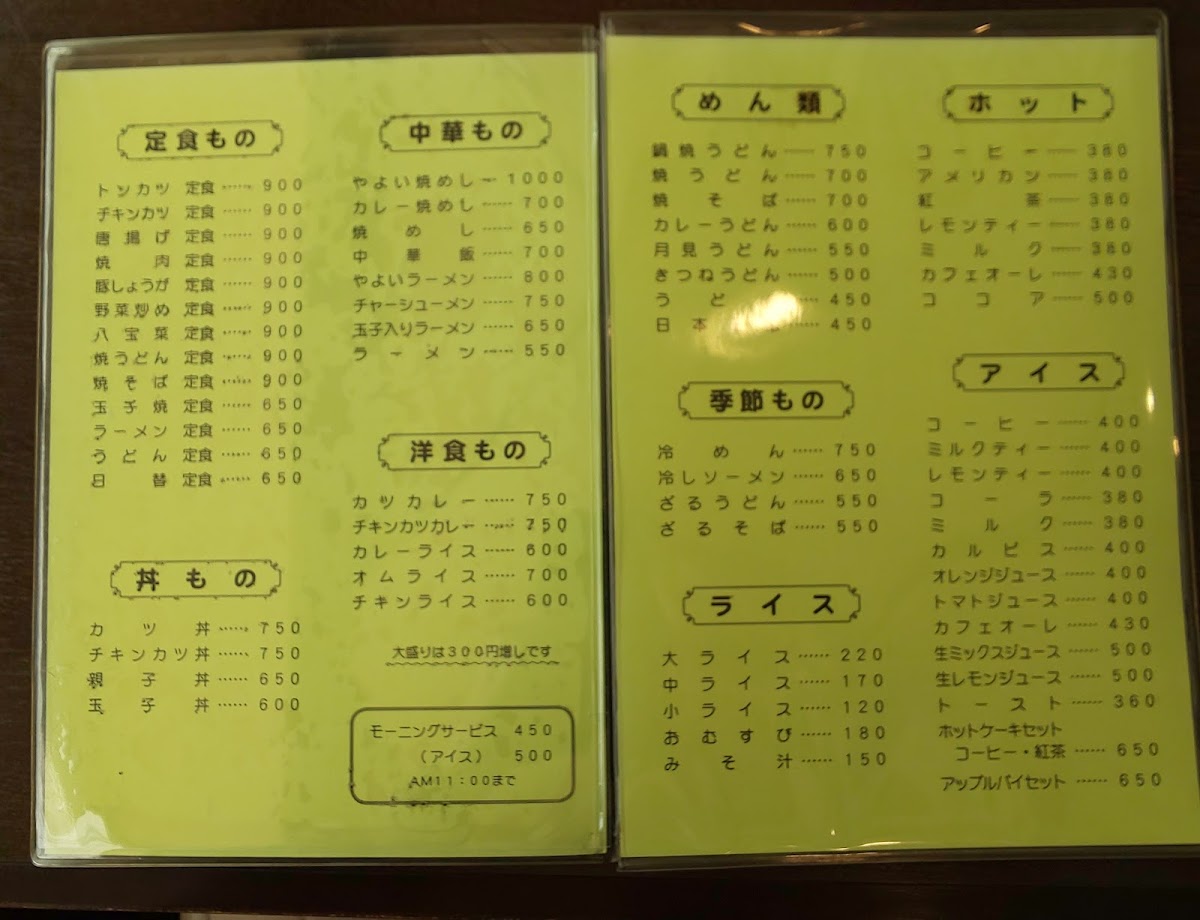 定食もの
トンカツ 定食 …… 900
チキンカツ 定食 …… 900
唐揚げ 定食 …… 900
焼肉 定食 …… 900
豚しょうが 定食 …… 900
野菜炒め 定食 …… 900
八宝菜 定食 …… 900
焼うどん 定食 …… 900
焼そば 定食 …… 900
玉子焼 定食 …… 650
ラーメン 定食 …… 650
うどん 定食 …… 650
日替 定食 …… 650
丼もの
カツ丼 …… 750
チキンカツ丼 …… 750
親子丼 …… 650
玉子丼 …… 600
中華もの
やよい焼めし … 1000
カレー焼めし …… 700
焼めし …… 650
中華飯 …… 700
やよいラーメン …… 800
チャーシューメン …… 750
玉子入りラーメン …… 650
ラーメン …… 550
洋食もの
カツカレー …… 750
チキンカツカレー …… 750
カレーライス …… 600
オムライス …… 700
チキンライス …… 600
大盛りは300円増しです
モーニングサービス 450
(アイス) 500
AM11:00まで
めん類
鍋焼うどん …… 750
焼うどん …… 700
焼そば …… 700
カレーうどん …… 600
月見うどん …… 550
きつねうどん …… 500
うど 450
日本 450
季節もの
冷めん …… 750
冷しソーメン …… 650
ざるうどん …… 550
ざるそば …… 550
ライス
大ライス …… 220
中ライス …… 170
小ライス …… 120
おむすび …… 180
みそ汁 …… 150
ホット
コーヒー …… 380
アメリカン …… 380
紅茶 …… 380
レモンティー …… 380
ミルク …… 380
カフェオーレ …… 430
ココア …… 500
アイス
コーヒー …… 400
ミルクティー …… 400
レモンティー …… 400
コーラ …… 380
ミルク …… 380
カルピス …… 400
オレンジジュース …… 400
トマトジュース …… 400
カフェオーレ …… 430
生ミックスジュース …… 500
生レモンジュース …… 500
トースト …… 360
ホットケーキセット
コーヒー・紅茶 …… 650
アップルパイセット …… 650